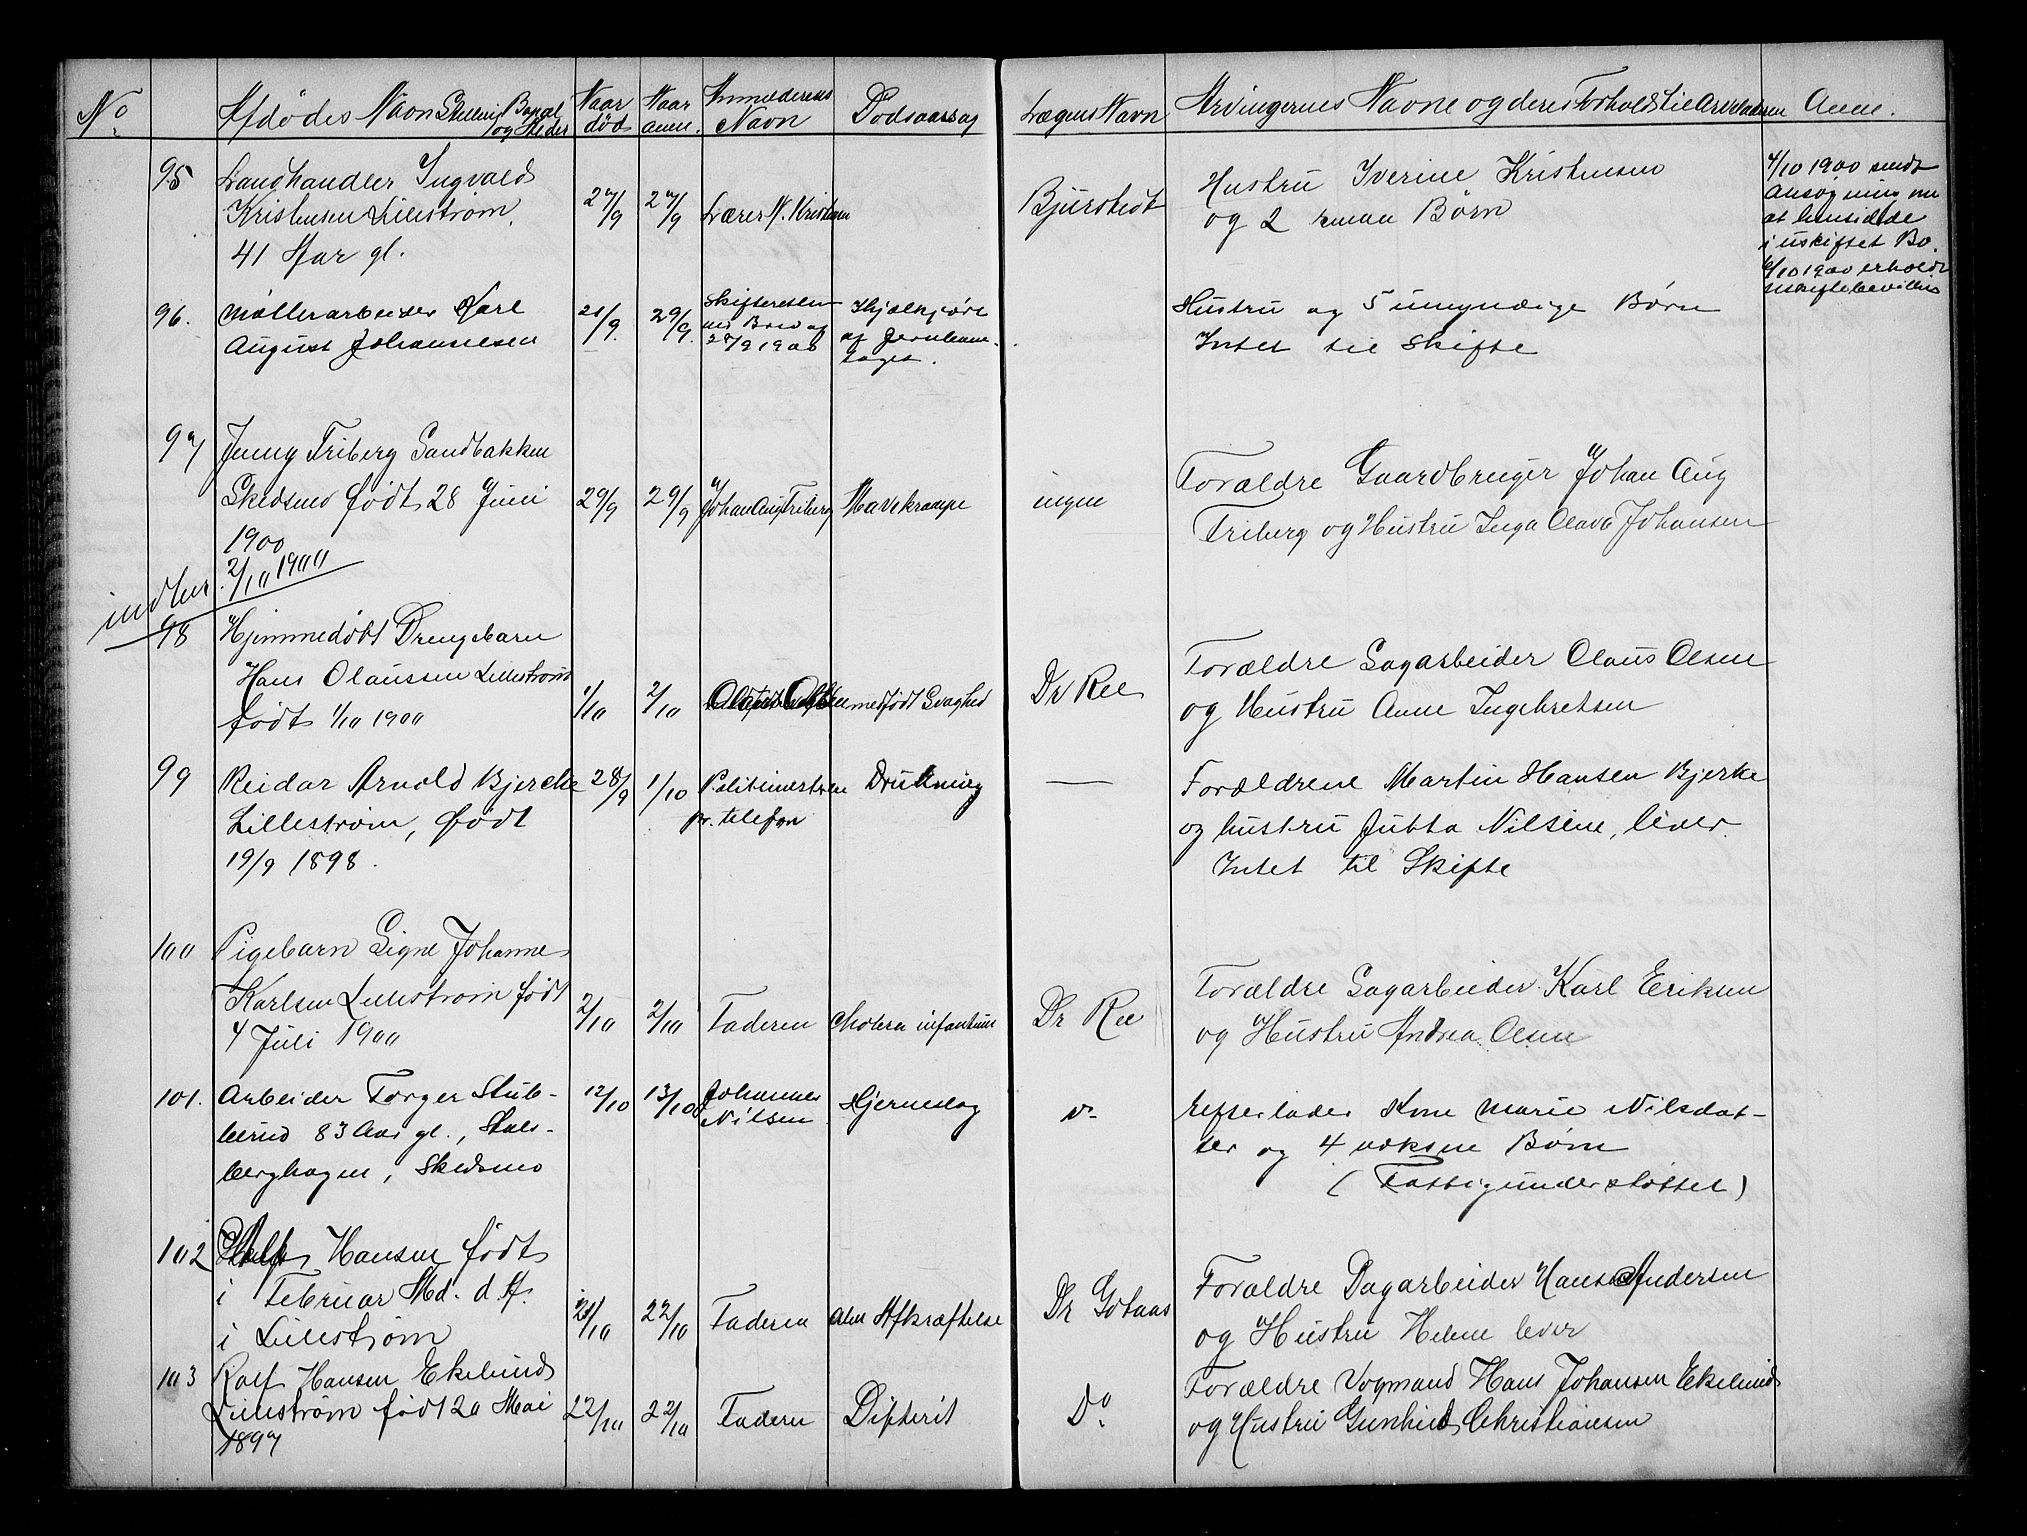 No
Afdødes Navn Stilling Bopæl og Alder
Naar død
Naar anm.
Anmelderens Navn
Dødsaarsag
Lægens Navn
Arvingernes Navne og deres Forhold til Arveladeren
Anm.
95
Landhandler Ingvald
Kristensen Lillestrøm
41 Aar gl.
27/9
27/9
Lærer N. Kristensen
Bjurstedt
Hustru Iverine Kristensen
og 2 Børn
4/10 1900 sendt
Ansøgning om
at hensidde
i uskiftet Bo.
6/10 1900 erholdt
96.
Møllerarbeider Karl
August Johannesen
21/9.
29/9.
Skifteretten
ved Brev af
28/9 1900
Ihjælkjørt
af Jernbane-
toget.
Hustru og 5 umyndige Børn
Intet til Skifte
97
Jenny Friberg Sandbakken
Skedsmo født 28 Juni
1900
29/9
29/9
Johan Aug Friberg
Mavekrampe
ingen
Forældre Gaardbruger Johan Aug
Friberg og Hustru Inga Olava Johansen
indber. 2/10 1900
98
Hjemmedøbt Drengebarn
Hans Olaussen Lillestrøm
født 1/10 1900
1/10
2/10
medfødt Svaghed
Dr Ree
Forældre Sagarbeider Olaus Olsen
og Hustru Anne Ingebretsen
99
Reidar Arnold Bjercke
Lillestrøm, født
19/9 1898.
28/9
1/10
Politimesteren
pr. telefon
Drukning
—
Forældrene Martin Hansen Bjerke
og hustru Jutta Nilsine, lever.
Intet til Skifte
100
Pigebarn Signe Johanne
Karlsen Lillestrøm født
4 Juli 1900
2/10
2/10
Faderen
Cholera infantum
Dr Ree
Forældre Sagarbeider Karl Eriksen
og Hustru Andrea Olsen
101.
Arbeider Torger Stub-
berud 83 Aar gl., Stals-
berghagen, Skedsmo
12/10
13/10
Johannes
Nilsen
Hjerneslag
Efterlader Kone Marie Nilsdat-
ter og 4 voksne Børn
(Fattigunderstøttet)
102
Hansen født
i Februar Md. d. A.
i Lillestrøm
21/10
22/10
Faderen
Alm Afkræftelse
Dr Gotaas
Forældre Dagarbeider Hans Andersen
og Hustru Helene lever
103
Rolf Hansen Ekelund
Lillestrøm født 20 Mai
1897
22/10
22/10
Faderen
Difterit
Do
Forældre Vogmand Hans Johansen Ekelund
og Hustru Gunhild Christiansen